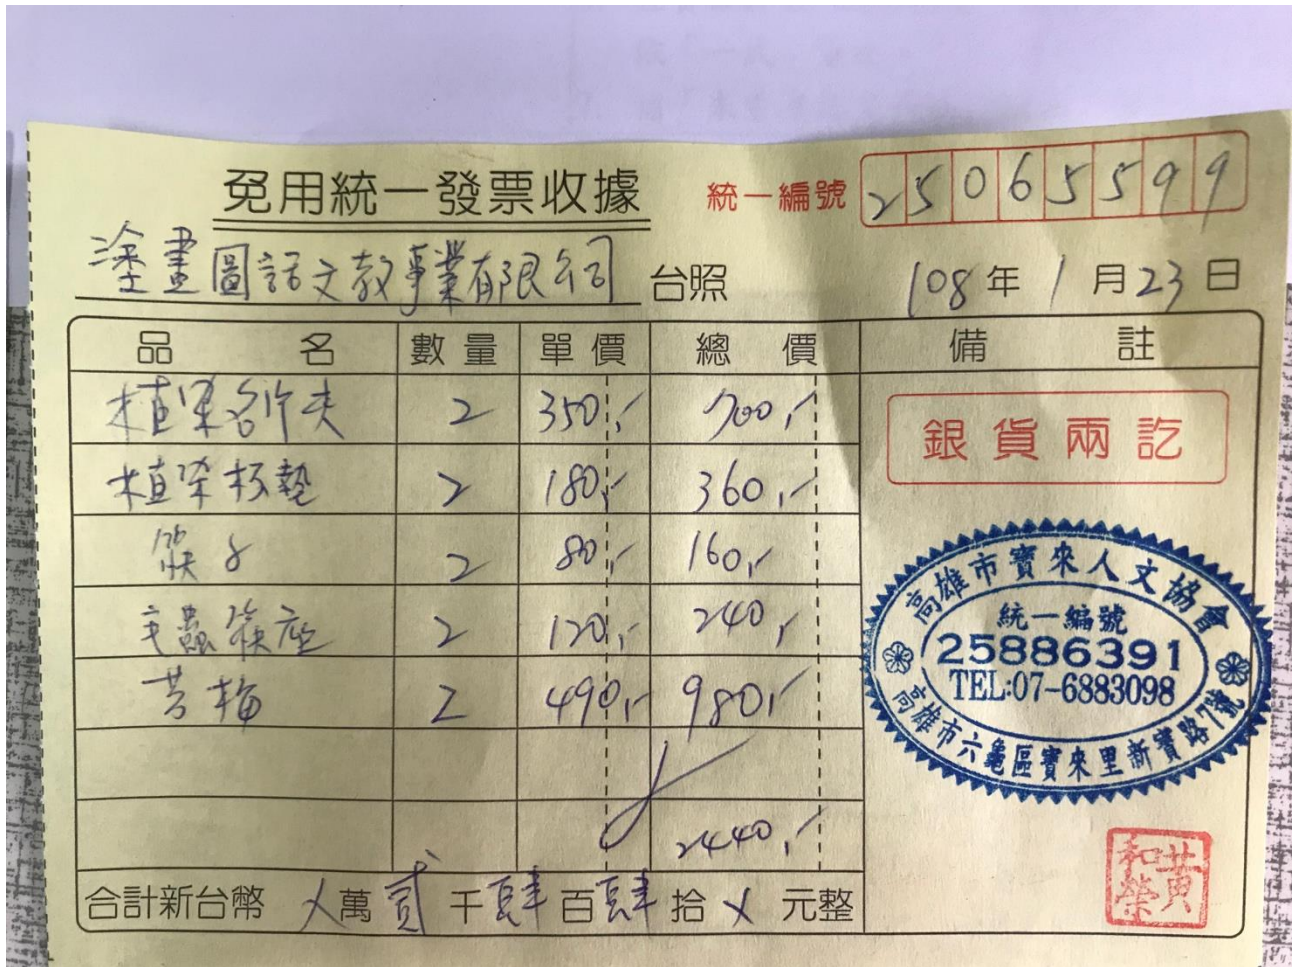 免用統一發票收據
統一編號 25065599
塗畫圖話文教事業有限公司 台照
108年1月23日
品名 數量 單價 總價 備註
植染名片夾 2 350,- 700,-
植染杯墊 2 180,- 360,-
筷子 2 80,- 160,-
毛蟲筷座 2 120,- 240,-
2 490,- 980,-
2440,-
合計新台幣 X萬貳千肆百肆拾X元整
銀貨兩訖
高雄市寶來人文協會
統一編號
25886391
TEL:07-6883098
高雄市六龜區寶來里新寶路7號
黃和榮